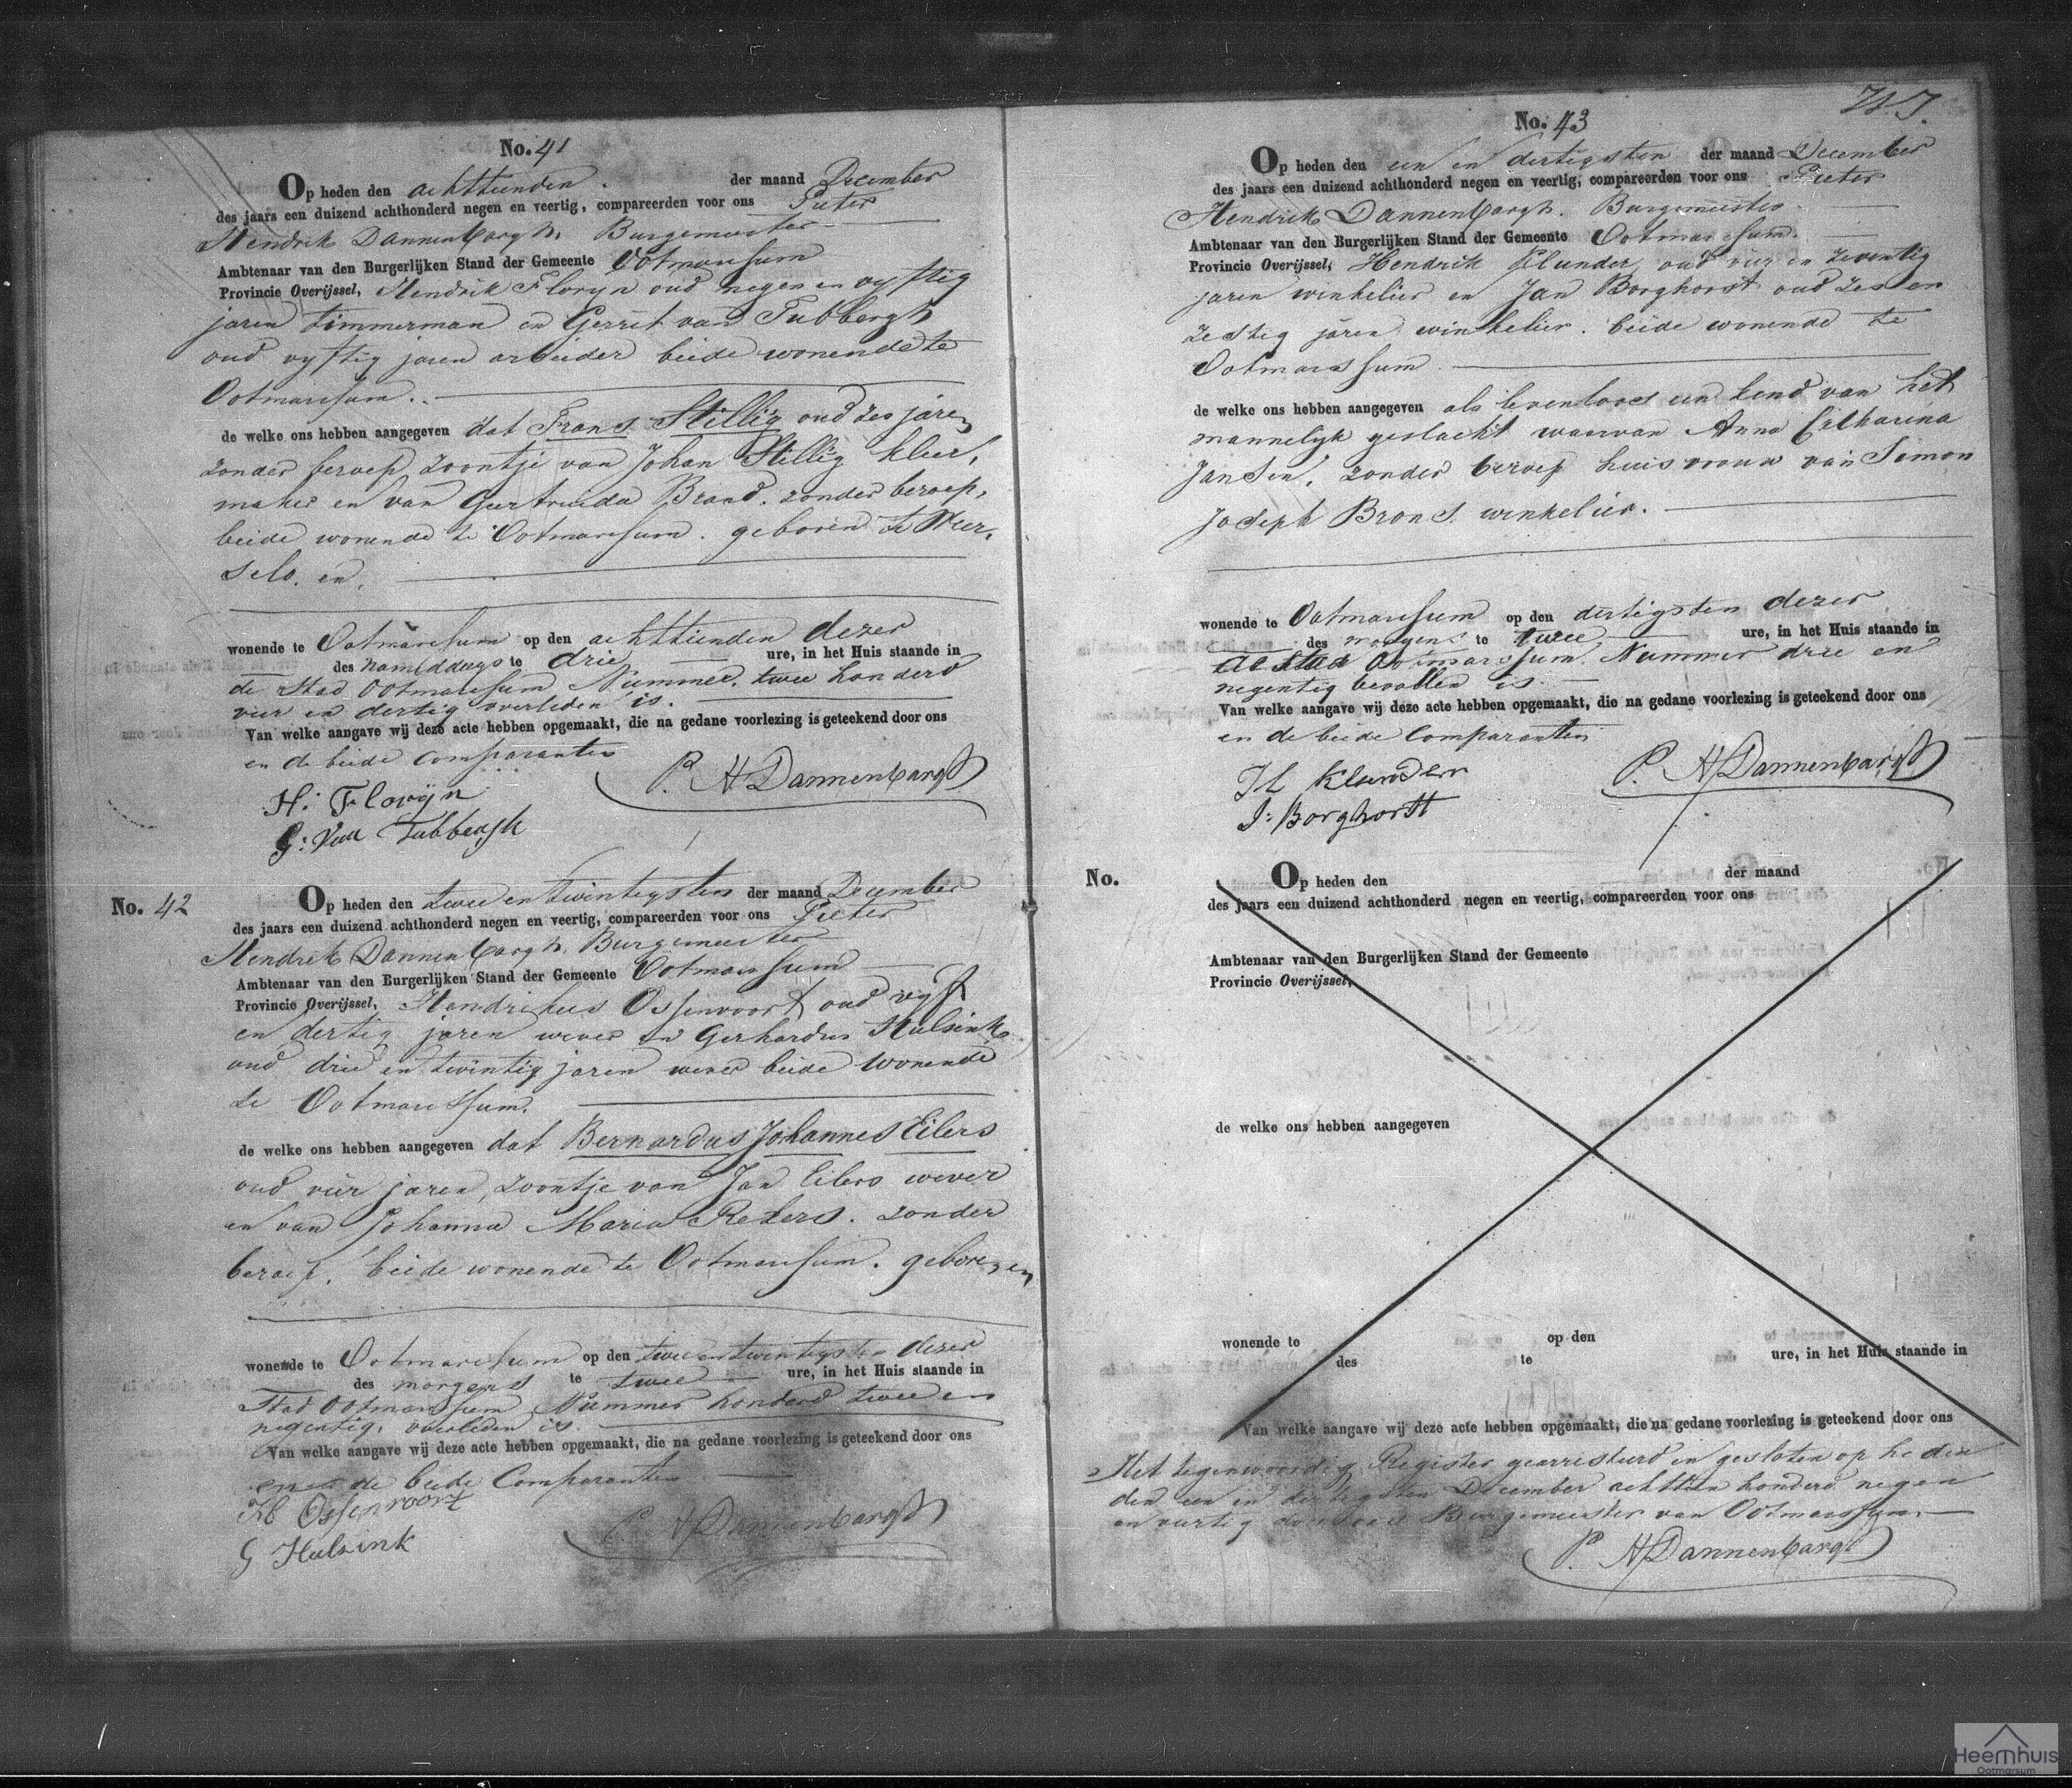 No. 41
Op heden den achttienden der maand December
des jaars een duizend achthonderd negen en veertig, compareerden voor ons Pieter
Hendrik Dannenbargh, Burgemeester
Ambtenaar van den Burgerlijken Stand der Gemeente Ootmarssum
Provincie Overijssel, Hendrik Floryn oud negen en vyftig
jaren timmerman en Gerrit van Tubbergh
oud vyftig jaren arbeider beide wonende te
Ootmarssum.
de welke ons hebben aangegeven dat Frans Stillig oud zes jaren
zonder beroep, zoontje van Johan Stillig kleer,
maker en van Geertruida Brand. zonder beroep,
beide wonende te Ootmarssum. geboren te Weer,
selo. en.
wonende te Ootmarssum op den achttienden dezer
des namiddags te drie ure, in het Huis staande in
de stad Ootmarssum Nummer. twee honderd
vier en dertig overleden is.
Van welke aangave wij deze acte hebben opgemaakt, die na gedane voorlezing is geteekend door ons
en de beide comparanten
P. H Dannenbargh
H: Floryn
G: Van Tubbergh
No. 42
Op heden den twee en twintigsten der maand December
des jaars een duizend achthonderd negen en veertig, compareerden voor ons Pieter
Hendrik Dannenbargh, Burgemeester
Ambtenaar van den Burgerlijken Stand der Gemeente Ootmarssum
Provincie Overijssel, Hendrikus Ossenvoort oud vyf
en dertig jaren wever en Gerhardus Hulsink
oud drie en twintig jaren wever beide wonende
te Ootmarssum.
de welke ons hebben aangegeven dat Bernardus Johannes Eilers
oud vier jaren, zoontje van Jan Eilers wever
en van Johanna Maria Reters. zonder
beroep, beide wonende te Ootmarssum. geboren, en
wonende te Ootmarssum op den twee en twintigsten dezer
des morgens te twee ure, in het Huis staande in
Stad Ootmarssum Nummer honderd twee en
negentig, overleden is.
Van welke aangave wij deze acte hebben opgemaakt, die na gedane voorlezing is geteekend door ons
en de beide Comparanten
H Ossenvoort
G Hulsink
P. H Dannenbargh
No. 43
Op heden den een en dertigsten der maand December
des jaars een duizend achthonderd negen en veertig, compareerden voor ons Pieter
Hendrik Dannenbargh. Burgemeester
Ambtenaar van den Burgerlijken Stand der Gemeente Ootmarssum.
Provincie Overijssel, Hendrik Klunder oud vier en zeventig
jaren winkelier en Jan Borghorst oud zes en
zestig jaren winkelier. beide wonende te
Ootmarssum
de welke ons hebben aangegeven als levenloos een kend van het
mannelyk geslacht waarvan Anna Catharina
Jansen, zonder beroep huisvrouw van Simon
Joseph Brons winkelier.
wonende te Ootmarssum op den dertigsten dezer
des morgens te twee ure, in het Huis staande in
de stad Ootmarssum. Nummer drie en
negentig bevallen is.
Van welke aangave wij deze acte hebben opgemaakt, die na gedane voorlezing is geteekend door ons
en de beide Comparanten
H Klunder
J: Borghorst
P. H Dannenbargh
No.
Op heden den der maand
des jaars een duizend achthonderd negen en veertig, compareerden voor ons
Ambtenaar van den Burgerlijken Stand der Gemeente
Provincie Overijssel,
de welke ons hebben aangegeven
wonende te op den
des te ure, in het Huis staande in
Van welke aangave wij deze acte hebben opgemaakt, die na gedane voorlezing is geteekend door ons
Het tegenwoordig Register gearresteerd en gesloten op heden
den een en dertigsten December achttien honderd negen
en veertig door ons Burgemeester van Ootmarssum
P. H Dannenbargh
Heemhuis
Ootmarsum